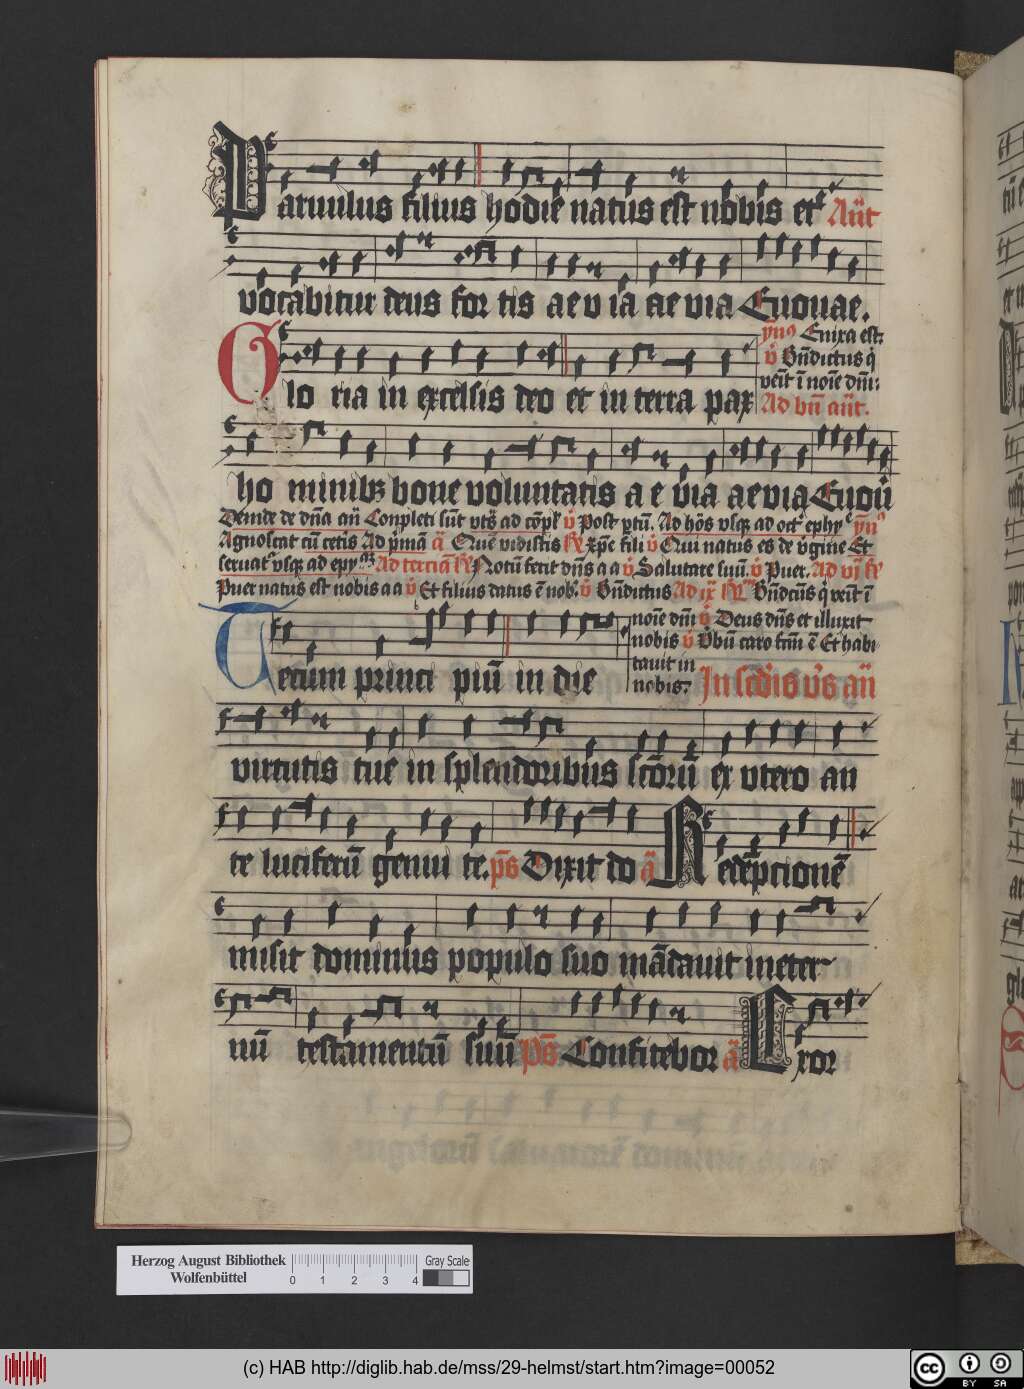 Paruulus filius hodie natus est nobis et Añt
vocabitur deus for tis a e v ia ae via Euouae.
ynꝰ Enixa est.
v̊ Bñdictus q̇
veit ĩ noĩe dñi:
Gloria in excelsis deo et in terra pax Ad bñ añt.
ho minibꝫ bone voluntatis a e via ae via Euoũ
Deinde de dña añ Conpleti sũt vts ad cõpl v̊ Post ptũ. Ad hõs vsqꝫ ad oct ephy ynꝰ
Agnoscat cũ cetis Ad p̃mam ã Quẽ vidistis ꝶ xp̃e fili v̊ Qui natus es de v̊gine Et
seruat vsqꝫ ad epy Ad terciam ꝶ Notũ fecit dñs a a v̊ Salutare suũ. v̊ Puer. Ad vj ꝶ
Puer natus est nobis a a v̊ Et filius datus ẽ nob. v̊ Bñdictus Ad ix ꝶ Bñdictus q̇ veit ĩ
noĩe dñi v̊ Deus dñs et illuxit
nobis v̊ v̊bũ caro fctm̃ ẽ Et habi
tauit in
nobis.
Tecum princi piũ in die In scdis v̊s añ
virtutis tue in splendoribus scõrũ ex vtero an
te luciferũ genui te. p̃s Dixit do ã Redẽpcionẽ
misit dominus populo suo mãdauit in eter
nũ testamentũ suũ p̃s Confitebor ã Exor
Herzog August Bibliothek
Wolfenbüttel
0 1 2 3 4
Gray Scale
(c) HAB http://diglib.hab.de/mss/29-helmst/start.htm?image=00052
cc BY SA